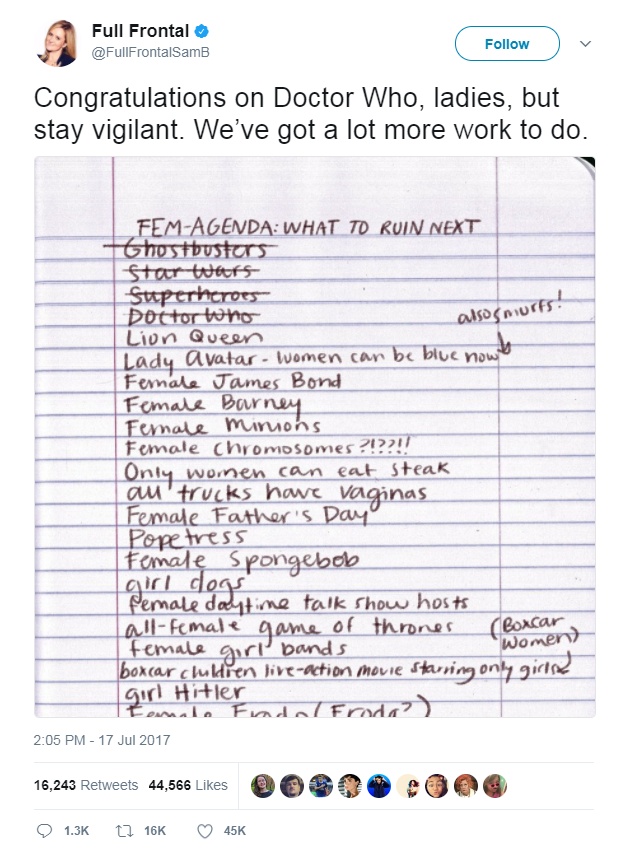 Full Frontal
@FullFrontalSamB
Follow
Congratulations on Doctor Who, ladies, but
stay vigilant. We've got a lot more work to do.
FEM-AGENDA: WHAT TO RUIN NEXT
Ghostbusters
Star Wars
Superheroes
Doctor Who
also smurfs!
Lion Queen
Lady Avatar - women can be blue now
Female James Bond
Female Barney
Female Minions
Female Chromosomes ?!??!!
Only women can eat steak
all trucks have vaginas
Female Father's Day
Popetress
Female Spongebob
girl dogs
female daytime talk show hosts
all-female game of thrones
(Boxcar
women)
female girl bands
boxcar children live-action movie starring only girls
girl Hitler
Female Frodo (Froda?)
2:05 PM - 17 Jul 2017
16,243 Retweets 44,566 Likes
1.3K 16K 45K